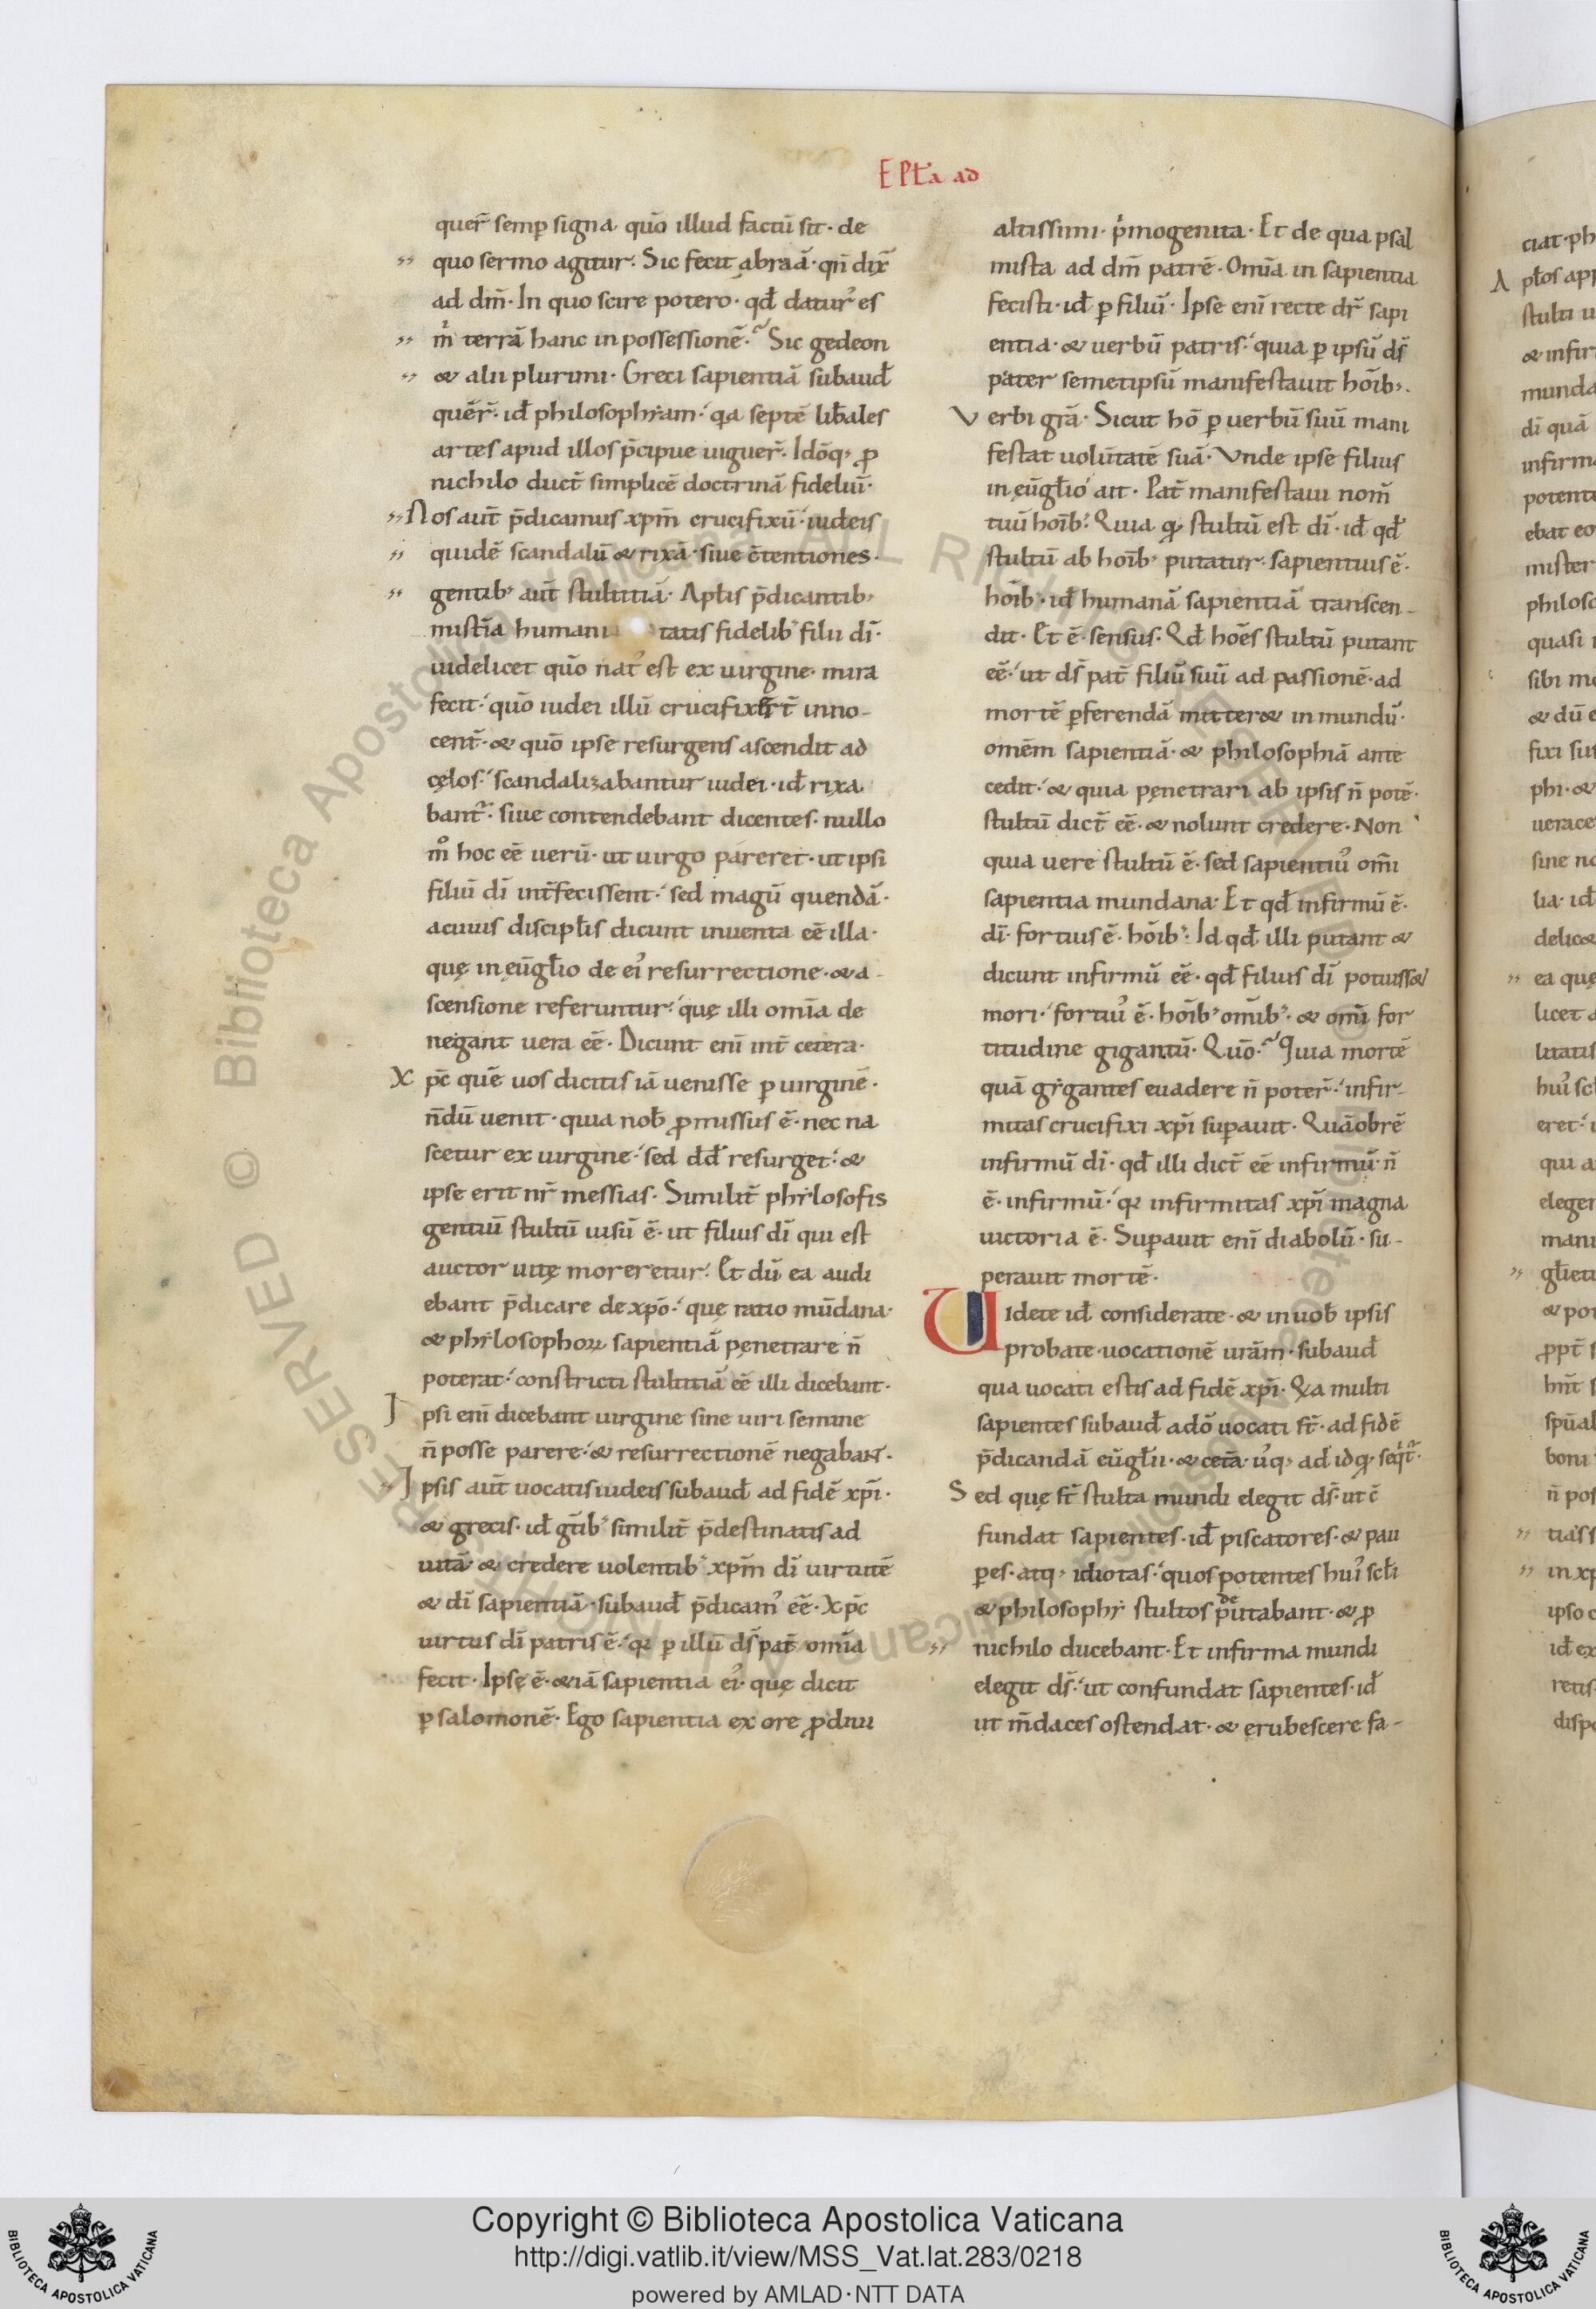 EPLa ad
quer̄ semꝑ signa quō illud factū sit · de
quo sermo agitur. Sic fecit abraā · qn̄ dix̄
ad dm̄ · In quo scire potero · qđ daturꝰ es
m̓ terrā hanc in possessionē. Sic gedeon
& alii plurimi · Greci sapientiā subauđ
quēr̄ · iđ philosophẏam · qa septē lib̄ales
artes apud illos p̄cipue uiguer̄ · Idōq; ꝓ
nichilo duct̄ simplicē doctrinā fideliū ·
Nos aut̄ p̄dicamus xpm̄ crucifixū · iudeis
quidē scandalū & rixā · siue c̄tentiones ·
gentib; aut̄ stultitiā · Apłis p̄dicantib;
mist̄ia humani tatis fidelib; filii dī ·
uidelicet quō natꝰ est ex uirgine · mira
fecit · quō iudei illū crucifixer̄t inno-
cent̄ · & quō ipse resurgens ascendit ad
cęlos · scandalizabantur iudei · iđ rixa
bant᷑ · siue contendebant dicentes · nullo
mͦ hoc eē̄ uerū · ut uirgo pareret · ut ipsi
filiū dī int̄fecissent · sed magū quendā ·
a cuius discipłis dicunt inuenta eē illa ·
quę in eūgłio de eiꝰ resurrectione · & a-
scensione referuntur · quę illi omīa de
negant uera eē · Dicunt enī int̄ cetera ·
Xpc̄ quē uos dicitis iā uenisse ꝑ uirginē ·
n̄dū uenit · quia nob̄ ꝓmissus ē · nec na
scetur ex uirgine · sed dd̄ resurget · &
ipse erit nr̄ messias · Similit̄ phẏlosofis
gentiū stultū uisū ē · ut filius dī qui est
auctor uitę moreretur. Et dū ea audi
ebant p̄dicare de xpō · quę ratio mūdana
& phẏlosophoꝝ sapientiā pęnetrare n̄
poterat · constricti stultitiā eē illi dicebant ·
Ipsi enī dicebant uirgine sine uiri semine
n̄ posse parere · & resurrectionē negabant ·
Ipsis aut̄ uocatis iudeis subauđ ad fidē xpī ·
& grecis · iđ gt̄ib; similit̄ p̄destinatis ad
uitā · & credere uolentib; xpm̄ dī uirtutē
& dī sapientiā · subauđ p̄dicamꝰ eē · Xpc̄
uirtus dī patris ē · qꝛ ꝑ illū ds̄ pat̄ omīa
fecit · Ipsę ē · &iā sapientia eiꝰ · quę dicit
ꝑ salomonē · Ego sapientia ex ore ꝓdiui
altissimi · p̓mogenita · Et de qua psal
mista ad dm̄ patrē · Omīa in sapientia
fecisti · iđ ꝑ filiū · Ipse enī recte dr̄ sapi
entia · & uerbū patris · quia ꝑ ipsū ds̄
pater semetipsū manifestauit hoīb; ·
Verbi grā · Sicut hō ꝑ uerbū suū mani
festat uolūtatē suā · Vnde ipse filius
in ęūgłio ait · Pat̄ manifestaui nom̄
tuū hoīb; Quia qđ stultū est dī · iđ qđ
stultū ab hoīb; putatur · sapientius ē ·
hoīb; · iđ humanā sapientiā transcen-
dit · Et ē · sensus · Qđ hoēs stultū putant
eē · ut ds̄ pat̄ filiū suū ad passionē · ad
mortē ꝑferendā mitter& in mundū ·
omēm sapientiā · & philosophiā ante
cedit · & quia pęnetrari ab ipsis n̄ potē ·
stultū dict̄ eē · & nolunt credere · Non
quia uere stultū ē · sed sapientiꝰ omī
sapientia mundana · Et qđ infirmū ē ·
dī · fortius ē · hoīb; · Id qđ illi putant &
dicunt infirmū eē · qđ filius dī potuiss&
mori · fortiꝰ ē · hoīb; omīb; · & omī for
titudine gigantū · Quō · Quia mortē
quā gẏgantes euadere n̄ poter̄ · infir-
mitas crucifixi xpī suꝑauit · Quāobrē
infirmū dī · qđ illi dict̄ eē infirmū · n̄
ē · infirmū · qꝛ infirmitas xpī magna
uictoria ē · Suꝑauit enī diabolū · su-
perauit mortē ·
Uidete iđ considerate · & in uob̄ ipsis
probate · uocationē urām · subauđ
qua uocati estis ad fidē xpī · Qa multi
sapientes subauđ adō uocati st̄ · ad fidē
p̄dicandā eūgłii · & cetā · uꝰq; ad idqđ seqt̄ ·
Sed quę st̄ stulta mundi elegit ds̄ · ut c̄
fundat sapientes · iđ piscatores · & pau
ꝑes · atq; idiotas · quos potentes huiꝰ scłi
& philosophẏ stultos deputabant · & ꝓ
nichilo ducebant · Et infirma mundi
elegit ds̄ · ut confundat sapientes · iđ
ut m̄daces ostendat · & erubescere fa-
Copyright © Biblioteca Apostolica Vaticana
http://digi.vatlib.it/view/MSS_Vat.lat.283/0218
powered by AMLAD·NTT DATA
BIBLIOTECA APOSTOLICA VATICANA
BIBLIOTECA APOSTOLICA VATICANA